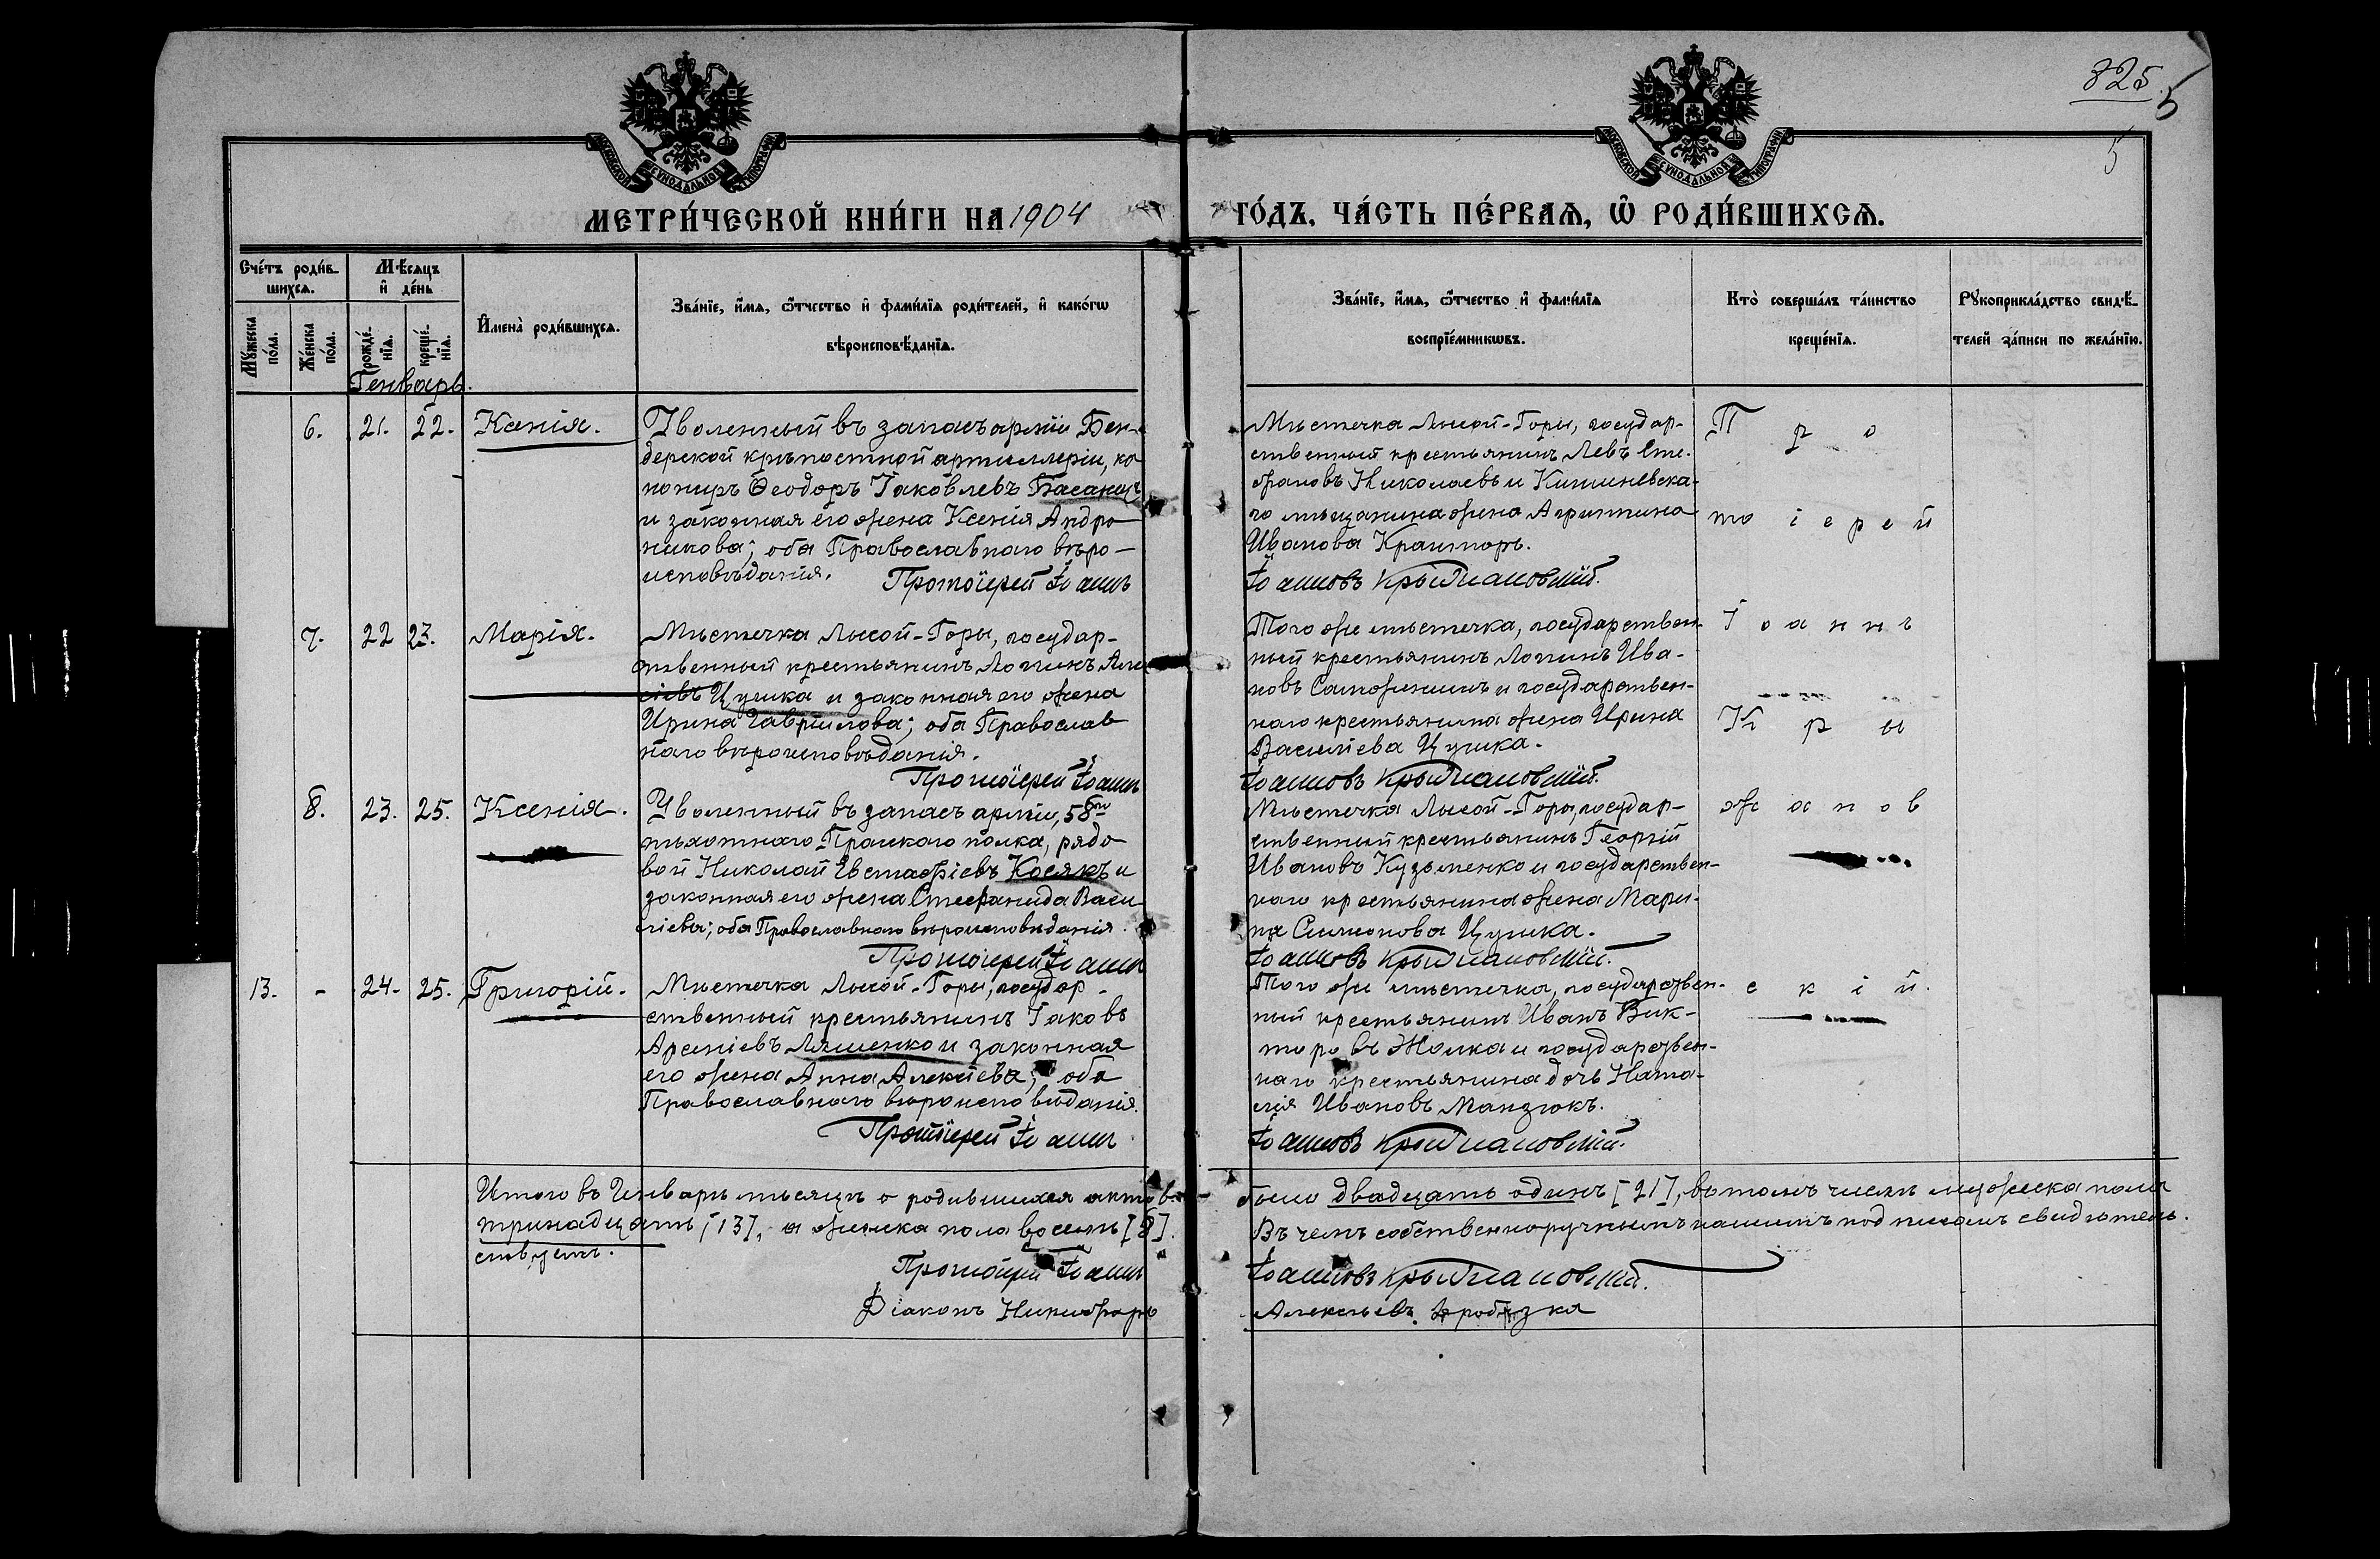 325.
5
5
МОСКОВСКОЙ СѴНОДАЛЬНОЙ ТИПОГРАФІИ
МОСКОВСКОЙ СѴНОДАЛЬНОЙ ТИПОГРАФІИ
МЕТРИ́ЧЕСКОЙ КНИ́ГИ НА 1904 ГО́ДЪ, ЧА́СТЬ ПЕ́РВАѦ, Ѽ РОДИ́ВШИХСѦ.
Сче́тъ роди́в-
шихсѧ.
Мѣ́сяцъ
и҆ де́нь
Мꙋ́жеска по́ла.
Же́нска по́ла.
рожде́-нїѧ.
креще́-нїѧ.
И҆мена̀ роди́вшихсѧ.
Зва́нїе, и҆́мѧ, ѻ҆́тчество и҆ фами́лїѧ роди́телей, и҆ како́гѡ
вѣроисповѣ́данїѧ.
Зва́нїе, и҆́мѧ, ѻ҆́тчество и҆ фами́лїѧ
воспрїе́мникѡвъ.
Кто̀ соверша́лъ та́инство
креще́нїѧ.
Рꙋкоприкла́дство свидѣ́-
телей за́писи по жела́нїю.
Генварь.
6. 21. 22. Ксенія.
Уволенный въ запасъ арміи Бен-
дерской крѣпостной артиллеріи, ка
нониръ Ѳеодоръ Іаковлевъ
и законная его жена Ксенія Андро
никова; оба Православнаго вѣро-
исповѣданія.
Протоіерей Іоаннъ
Мѣстечка Лысой-Горы, государ-
ственный крестьянинъ Левъ Сте-
фановъ Николаевъ и Кишиневска-
го мѣщанина жена Агриппина
Иванова
Іоанновъ Крыжановскій.
Про
тоіерей
7. 22 23. Марія.
Мѣстечка Лысой-Горы, государ-
ственный крестьянинъ Логинъ Але
сіевъ Цулика и законная его жена
Ирина Гавріилова; оба Православ
наго вѣроисповѣданія.
Протоіерей Іоаннъ
Того же мѣстечка, государствен-
ный крестьянинъ Логинъ Ива-
новъ и государствен-
наго крестьянина жена Ирина
Василіева Цулика.
Іоанновъ Крыжановскій.
Іоаннъ
Кры
8. 23. 25. Ксенія.
Уволенный въ запасъ арміи, 58го
пѣхотнаго Прагскаго полка, рядо
вой Николай Евстафіевъ Косякъ и
законная его жена Стефанида Васи
ліева; оба Православнаго вѣроисповѣданія.
Протоіерей Іоаннъ
Мѣстечка Лысой-Горы, государ-
ственный крестьянинъ Георгій
Ивановъ Кузьменко и государствен-
наго крестьянина жена Мари-
на Симонова Цулика.
Іоанновъ Крыжановскій.
жанов
13. - 24. 25. Григорій.
Мѣстечка Лысой-Горы, государ-
ственный крестьянинъ Іаковъ
Арсеніевъ Ляшенко и законная
его жена Анна Алексіева; оба
Православнаго вѣроисповѣданія.
Протоіерей Іоаннъ
Того же мѣстечка, государствен-
ный крестьянинъ Иванъ Вик-
торовъ Жолка и государствен-
наго крестьянина дочь Ната-
лія Ивановъ Манзюкъ.
Іоанновъ Крыжановскій.
скій.
Итого въ Генварѣ мѣсяцѣ о родившихся актовъ было двадцать одинъ [21], въ томъ числѣ мужеска пола
тринадцать [13], а женска пола восемь [8]. Въ чемъ собственноручнымъ нашимъ подписомъ свидѣтель-
ствуемъ.
Протоіерей Іоаннъ Іоанновъ Крыжановскій.
Діаконъ Никифоръ Алексѣевъ